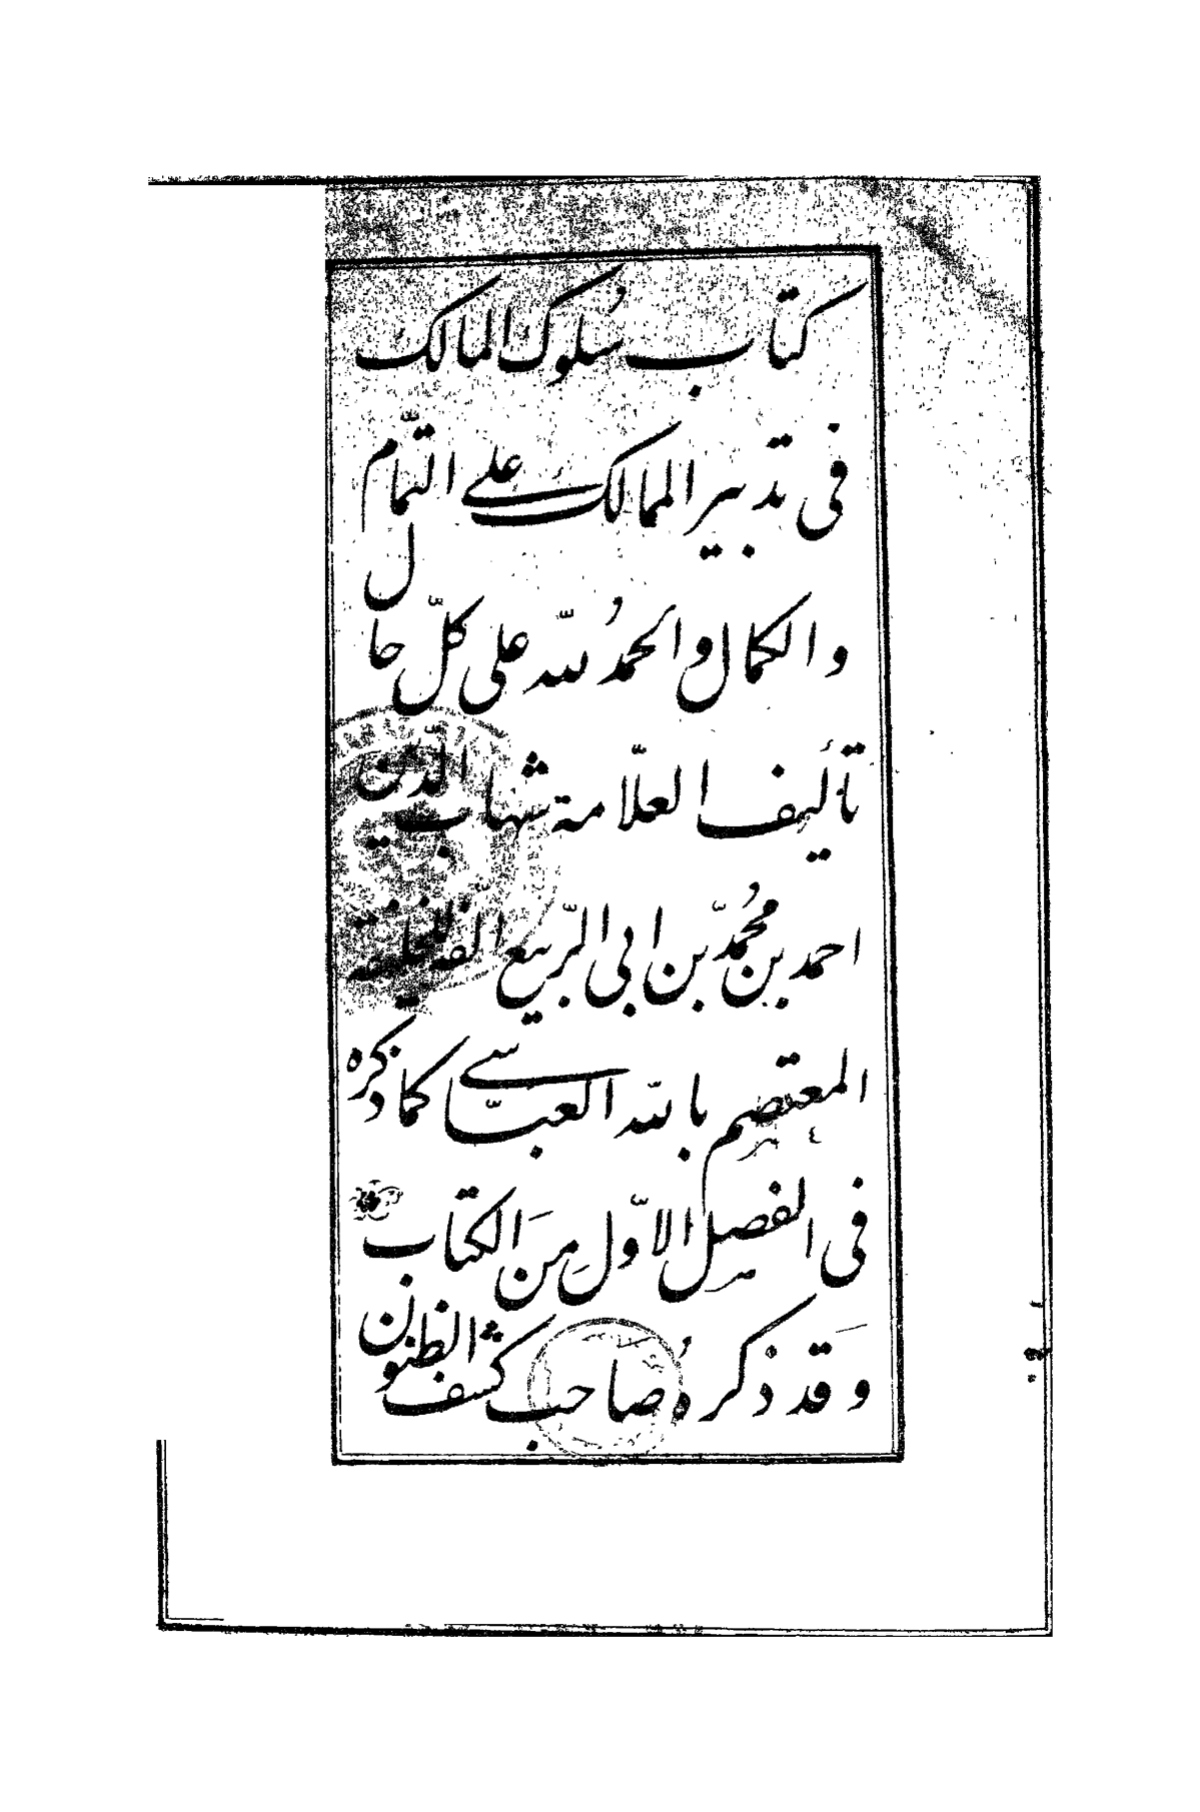 كتاب سُلوك المالك
فى تدبير الممالك على التمام
والكمال والحمدُ للّه على كلّ حال
تأليف العلّامة شهاب الدّين
احمد بن محُمّد بن ابى الرّبيع الّفه للخليفة
المعتصم باللّه العبّاسى كما ذكره
فى الفصل الاوّلِ مِنَ الكتاب
وَقد ذكرهُ صاحب كشف الظنون